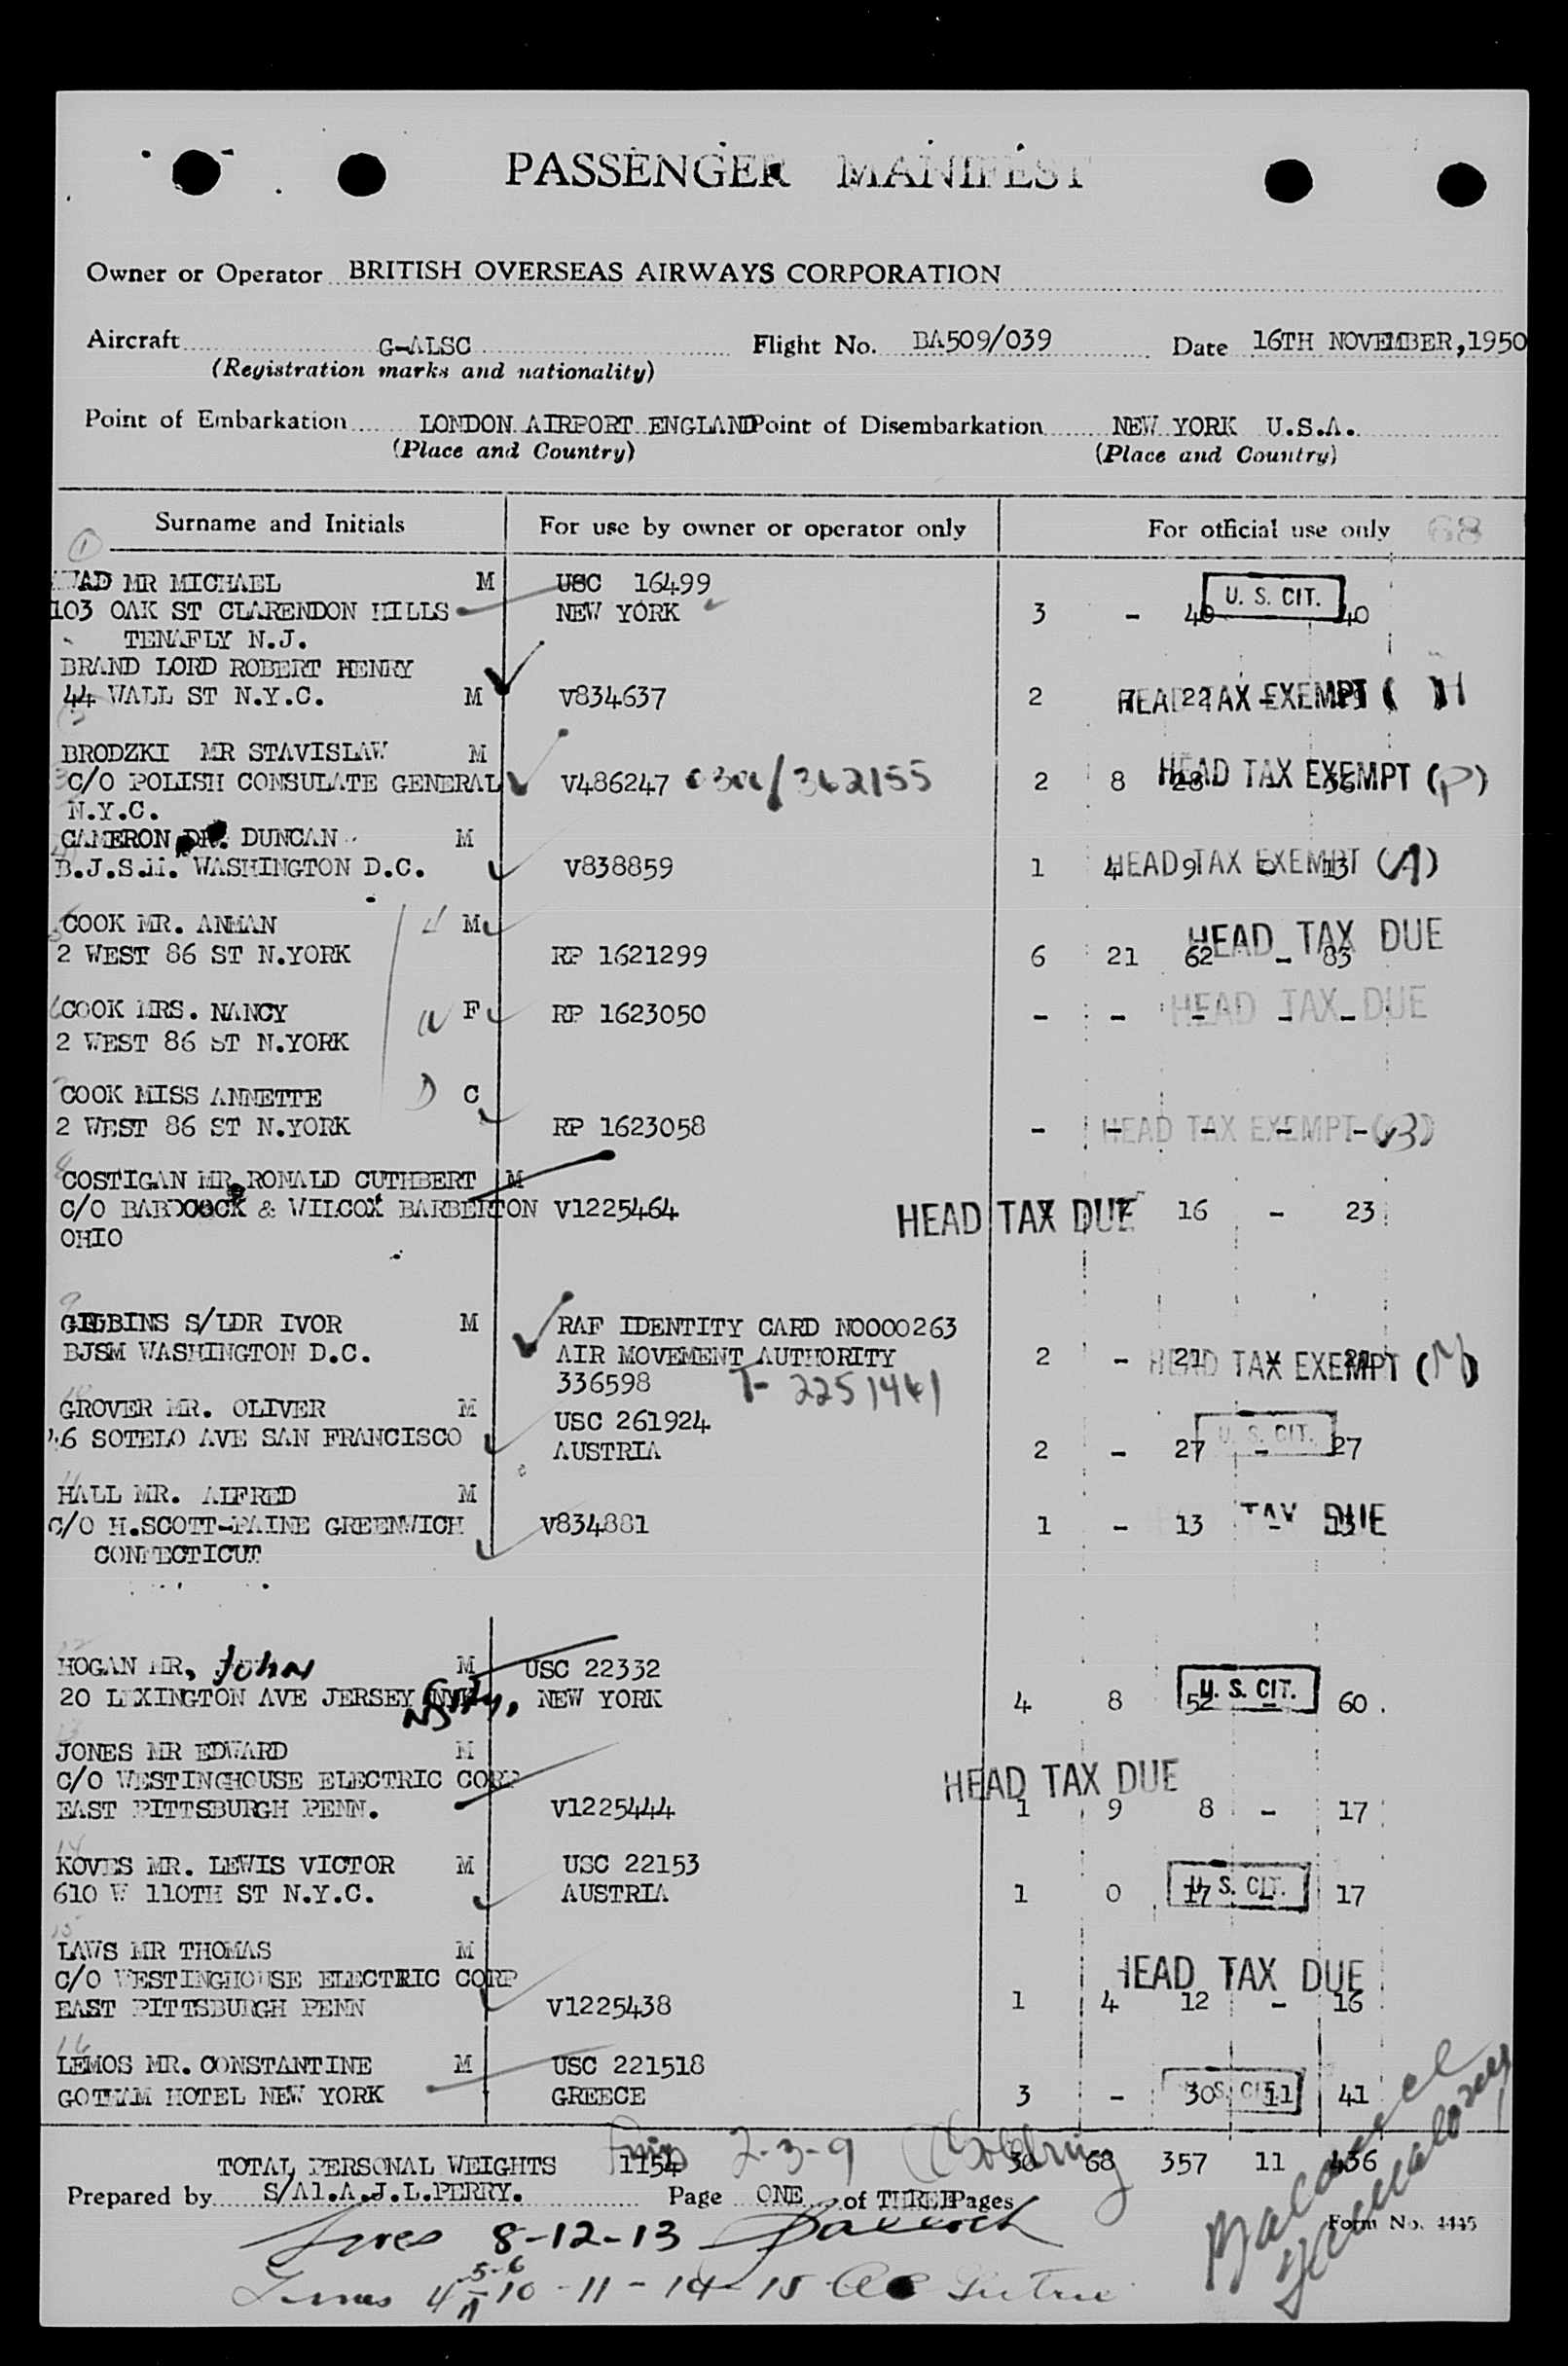 PASSENGER MANIFEST
Owner or Operator BRITISH OVERSEAS AIRWAYS CORPORATION
Aircraft G-ALSC Flight No. BA509/039 Date 16TH NOVEMBER,1950
(Registration marks and nationality)
Point of Embarkation LONDON AIRPORT ENGLAND Point of Disembarkation NEW YORK U.S.A.
(Place and Country) (Place and Country)
Surname and Initials For use by owner or operator only For official use only 68
1
MR MICHAEL M USC 16499 U. S. CIT.
103 OAK ST CLARENDON HILLS NEW YORK 3 - 40 40
TENAFLY N.J.
BRAND LORD ROBERT HENRY
44 WALL ST N.Y.C. M V834637 2 22 HEAD TAX EXEMPT ( )H
BRODZKI MR STAVISLAW M
C/O POLISH CONSULATE GENERAL V486247 362155 2 8 28 36 HEAD TAX EXEMPT (P)
N.Y.C.
CAMERON DR. DUNCAN M
B.J.S.M. WASHINGTON D.C. V838859 1 4 9 - 13 HEAD TAX EXEMPT (A)
COOK MR. ANMAN M HEAD TAX DUE
2 WEST 86 ST N.YORK RP 1621299 6 21 62 - 83
6 COOK MRS. NANCY W F RP 1623050 - - - - - HEAD TAX DUE
2 WEST 86 ST N.YORK
COOK MISS ANNETTE D C
2 WEST 86 ST N.YORK RP 1623058 - - - - - HEAD TAX EXEMPT (B)
8
COSTIGAN MR. RONALD CUTHBERT M
C/O BABCOCK & WILCOX BARBERTON V1225464 HEAD TAX DUE 16 - 23
OHIO
9
S/LDR IVOR M RAF IDENTITY CARD NO000263
BJSM WASHINGTON D.C. AIR MOVEMENT AUTHORITY 2 - 21 21 HEAD TAX EXEMPT
336598 T- 2251441
10
GROVER MR. OLIVER M USC 261924 U. S. CIT.
46 SOTELO AVE SAN FRANCISCO AUSTRIA 2 - 27 - 27
11
HALL MR. ALFRED M
C/O H.SCOTT-PAINE GREENWICH V834881 1 - 13 - 13 TAX DUE
CONNECTICUT
12
HOGAN MR, John M USC 22332
20 LEXINGTON AVE JERSEY City, NEW YORK 4 8 52 - 60 U. S. CIT.
NJ
13
JONES MR EDWARD M
C/O WESTINGHOUSE ELECTRIC CORP HEAD TAX DUE
EAST PITTSBURGH PENN. V1225444 1 9 8 - 17
14
KOVES MR. LEWIS VICTOR M USC 22153
610 W 110TH ST N.Y.C. AUSTRIA 1 0 17 - 17 U. S. CIT.
15
LAWS MR THOMAS M
C/O WESTINGHOUSE ELECTRIC CORP HEAD TAX DUE
EAST PITTSBURGH PENN V1225438 1 4 12 - 16
16
LEMOS MR. CONSTANTINE M USC 221518
GOTHAM HOTEL NEW YORK GREECE 3 - 30 11 41 U. S. CIT.
2-3-9
TOTAL PERSONAL WEIGHTS 1154 30 68 357 11 436
Prepared by S/A1.A.J.L.PERRY. Page ONE of THREE Pages
8-12-13
Form No. 4445
5-6
4 10 - 11 - 14 - 15